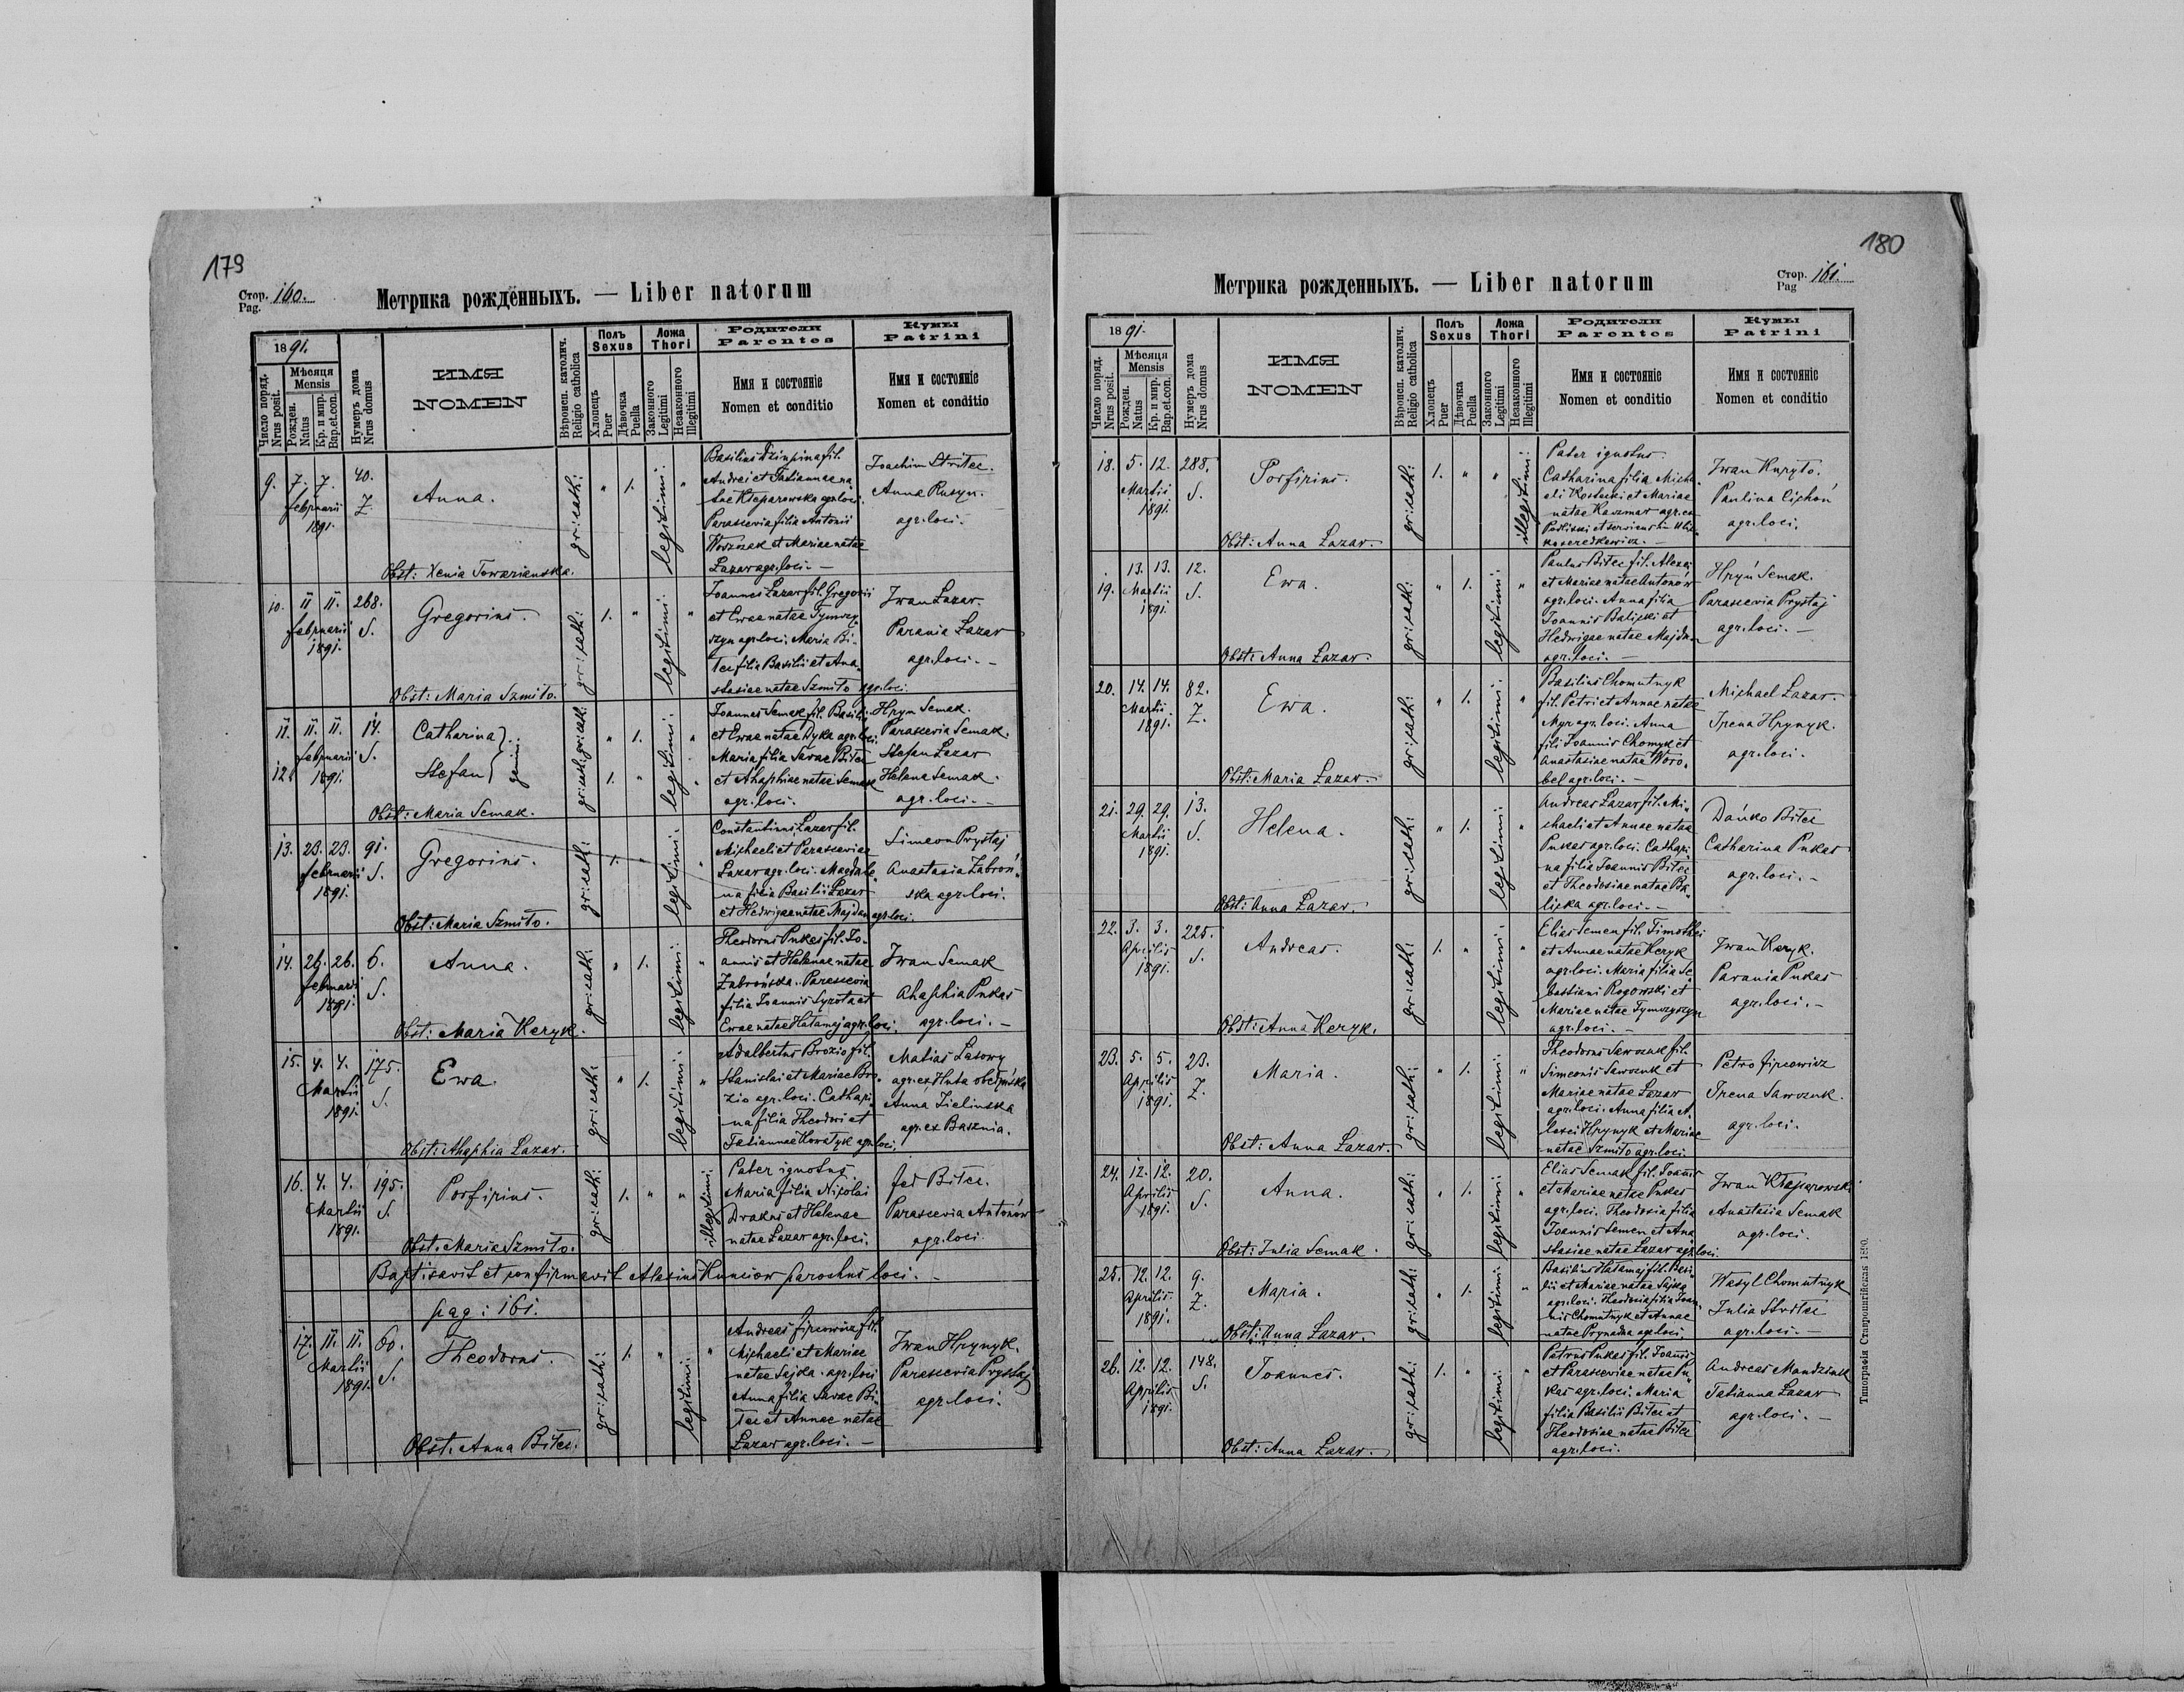 179
Стор. 160.
Pag.
Метрика рожденныхъ. — Liber natorum
1891.
Число поряд.
Nrus posit.
Мѣсяця
Mensis
Рожден.
Natus
Кр. и мир.
Bap.et.con.
Нумеръ дома
Nrus domus
ИМЯ
NOMEN
Вѣроисп. католич.
Religio catholica
Полъ
Sexus
Хлопецъ
Puer
Дѣвочка
Puella
Ложа
Thori
Законного
Legitimi
Незаконного
Illegitimi
Родители
Parentes
Имя и состояніе
Nomen et conditio
Кумы
Patrini
Имя и состояніе
Nomen et conditio
9. 7. 7. 40.
februarii Z.
1891.
Anna.
Obst: Xenia Towarianska.
gr: cath:
" 1.
legitimi:
"
Basilius Dziupina fil.
Andrei et Tatiannae na-
tae Kłaparowska agr. loci.
Parascevia filia Antonii
Woźczak et Mariae natae
Lazar agr. loci. —
Joachim Stritec.
Anna Rusyn.
agr. loci.
10. 11. 11. 268.
februarii S.
1891.
Gregorius.
Obst: Maria Szmiło.
gr: cath:
1. "
legitimi:
"
Joannes Lazar fil. Gregorii
et Ewae natae Tymczy-
szyn agr. loci; Maria Bi-
tec filia Basilii et Ana-
stasiae natae Szmiło agr. loci.
Iwan Lazar.
Parania Lazar
agr. loci. -
11. 11. 11. 14.
februarii S.
12. 1891.
Catharina
Stefan
gemini
Obst: Maria Semak.
gr: cath: gr: cath:
" 1.
1. "
legitimi:
Joannes Semak fil. Basilii
et Ewae natae Dyka agr. loci.
Maria filia Savae Bitec
et Ahaphiae natae Semak
agr. loci.
Hryn Semak.
Parascevia Semak.
Stefan Lazar
Helena Semak.
agr. loci. -
13. 23. 23. 91.
februarii S.
1891.
Gregorius.
Obst: Maria Szmiło.
gr: cath:
1. "
legitimi:
"
Constantinus Lazar fil.
Michaeli et Parasceviae
Lazar agr. loci. Magdale-
na filia Basilii Lazar
et Hedwigae natae Majdan agr. loci.
Simeon Prystaj
Anastasia Zabroń-
ska agr. loci.
14. 26. 26. 6.
februarii S.
1891.
Anna.
Obst: Maria Keryk.
gr: cath:
" 1.
legitimi:
"
Theodorus Pukas fil. Jo-
annis et Helenae natae
Zabrońska. Parascevia
filia Joannis Syrota et
Ewae natae Hałamaj agr. loci.
Iwan Semak
Ahaphia Pukas
agr. loci. —
15. 4. 4. 175.
Martii S.
1891.
Ewa.
Obst: Ahaphia Lazar.
gr: cath:
" 1.
legitimi:
"
Adalbertus Brozio fil.
Stanislai et Mariae Bro-
zio agr. loci. Cathari-
na filia Theodori et
Tatiannae Kowałyk agr. loci.
Matias Lasowy
agr. ex Huta
Anna Zielinska
agr. ex Basznia.
16. 4. 4. 195.
Martii S.
1891.
Porfirius.
Obst. Maria Szmiło.
gr: cath:
1. " "
illegitimi:
Pater ignotus.
Maria filia Nicolai
Drakus et Helenae
natae Lazar agr. loci.
Fed Bitec.
Parascevia Antonów
agr. loci
Baptisavit et confirmavit Alexius Kunciów parochus loci. -
pag: 161.
17. 11. 11. 60.
Martii S.
1891.
Theodorus.
Obst. Anna Bitec.
gr: cath:
1. "
legitimi:
"
Andreas Fircowicz fil.
Michaeli et Mariae
natae Sajka. agr. loci
Anna filia Savae Bi-
tec et Annae natae
Lazar agr. loci. —
Iwan Hrynyk.
Parascevia Prystaj
agr. loci.
180
Стор. 161.
Pag
Метрика рожденныхъ. — Liber natorum
1891.
Число поряд.
Nrus posit.
Мѣсяця
Mensis
Рожден.
Natus
Кр. и мир.
Bap.et.con.
Нумеръ дома
Nrus domus
ИМЯ
NOMEN
Вѣроисп. католич.
Religio catholica
Полъ
Sexus
Хлопецъ
Puer
Дѣвочка
Puella
Ложа
Thori
Законного
Legitimi
Незаконного
Illegitimi
Родители
Parentes
Имя и состояніе
Nomen et conditio
Кумы
Patrini
Имя и состояніе
Nomen et conditio
18. 5. 12. 288.
Martii S.
1891.
Porfirius.
Obst: Anna Lazar.
gr: cath:
1. " "
illegitimi:
Pater ignotus.
Catharina filia Micha-
eli Kostecki et Mariae
natae Kaczmar agr. ex
Iwan Kuryło.
Paulina Cichoń
agr. loci.
13. 13. 12.
19. Martii S.
1891.
Ewa.
Obst: Anna Lazar.
gr: cath:
" 1.
legitimi:
"
Paulus Bitec fil. Alexii
et Mariae natae Antonów
agr. loci. Anna filia
Joannis Balicki et
Hedwigae natae Majdan
agr. loci. —
Hryń Semak.
Parascevia Prystaj
agr. loci. —
20. 14. 14. 82.
Martii Z.
1891.
Ewa.
Obst: Maria Lazar.
gr: cath:
" 1.
legitimi:
"
Basilius Chomutnyk
fil. Petri et Annae natae
Myr agr. loci. Anna
fili Joannis Chomyk et
Anastasiae natae Woro-
bel agr. loci. —
Michael Lazar.
Irena Hrynyk.
agr. loci.
21. 29. 29. 13.
Martii S.
1891.
Helena.
Obst: Anna Lazar.
gr: cath:
" 1.
legitimi:
"
Andreas Lazar fil. Mi-
chaeli et Annae natae
Pukas agr. loci. Cathari-
na filia Joannis Bitec
et Theodosiae natae Ba-
licka agr. loci. -
Dańko Bitec
Catharina Pukas
agr. loci. -
22. 3. 3. 225.
Aprilis S.
1891.
Andreas.
Obst: Anna Keryk.
gr: cath:
1. "
legitimi:
"
Elias Semen fil. Timothei
et Annae natae Keryk
agr. loci. Maria filia Se-
bastiani Rogowski et
Mariae natae Tymczyszyn
agr. loci. —
Iwan Keryk.
Parania Pukas
agr. loci. -
23. 5. 5. 23.
Aprilis Z.
1891.
Maria.
Obst: Anna Lazar.
gr: cath:
" 1.
legitimi:
"
Theodorus Sawczuk fil.
Simeonis Sawczuk et
Mariae natae Lazar
agr. loci. Anna filia A-
lexei Hrynyk et Mariae
natae Szmiło agr. loci.
Petro Fircowicz
Irena Sawczuk.
agr. loci.
24. 12. 12. 20.
Aprilis S.
1891.
Anna.
Obst: Julia Semak.
gr: cath:
" 1.
legitimi:
"
Elias Semak fil. Joannis
et Mariae natae Pukas
agr. loci. Theodosia filia
Joannis Semen et Ana-
stasiae natae Lazar agr. loci.
Iwan Kłaparowski
Anastasia Semak
agr. loci.
25. 12. 12. 9.
Aprilis Z.
1891.
Maria.
Obst: Anna Lazar.
gr: cath:
" 1.
legitimi:
"
Basilius Hałamaj fil. Basi-
lii et Mariae natae Sajka
agr. loci. Theodosia filia Joan-
nis Chomutnyk et Annae
natae Prynada agr. loci.
Wasyl Chomutnyk
Julia Stritec
agr. loci. —
26. 12. 12. 148.
Aprilis S.
1891.
Joannes.
Obst: Anna Lazar.
gr: cath:
1. "
legitimi:
"
Petrus Pukas fil. Joannis
et Parasceviae natae Pu-
kas agr. loci. Maria
filia Basilii Bitec et
Theodosiae natae Bitec
agr. loci.
Andreas Mandziuk
Tatianna Lazar
agr. loci. —
Типографія Ставропигійская 1890.